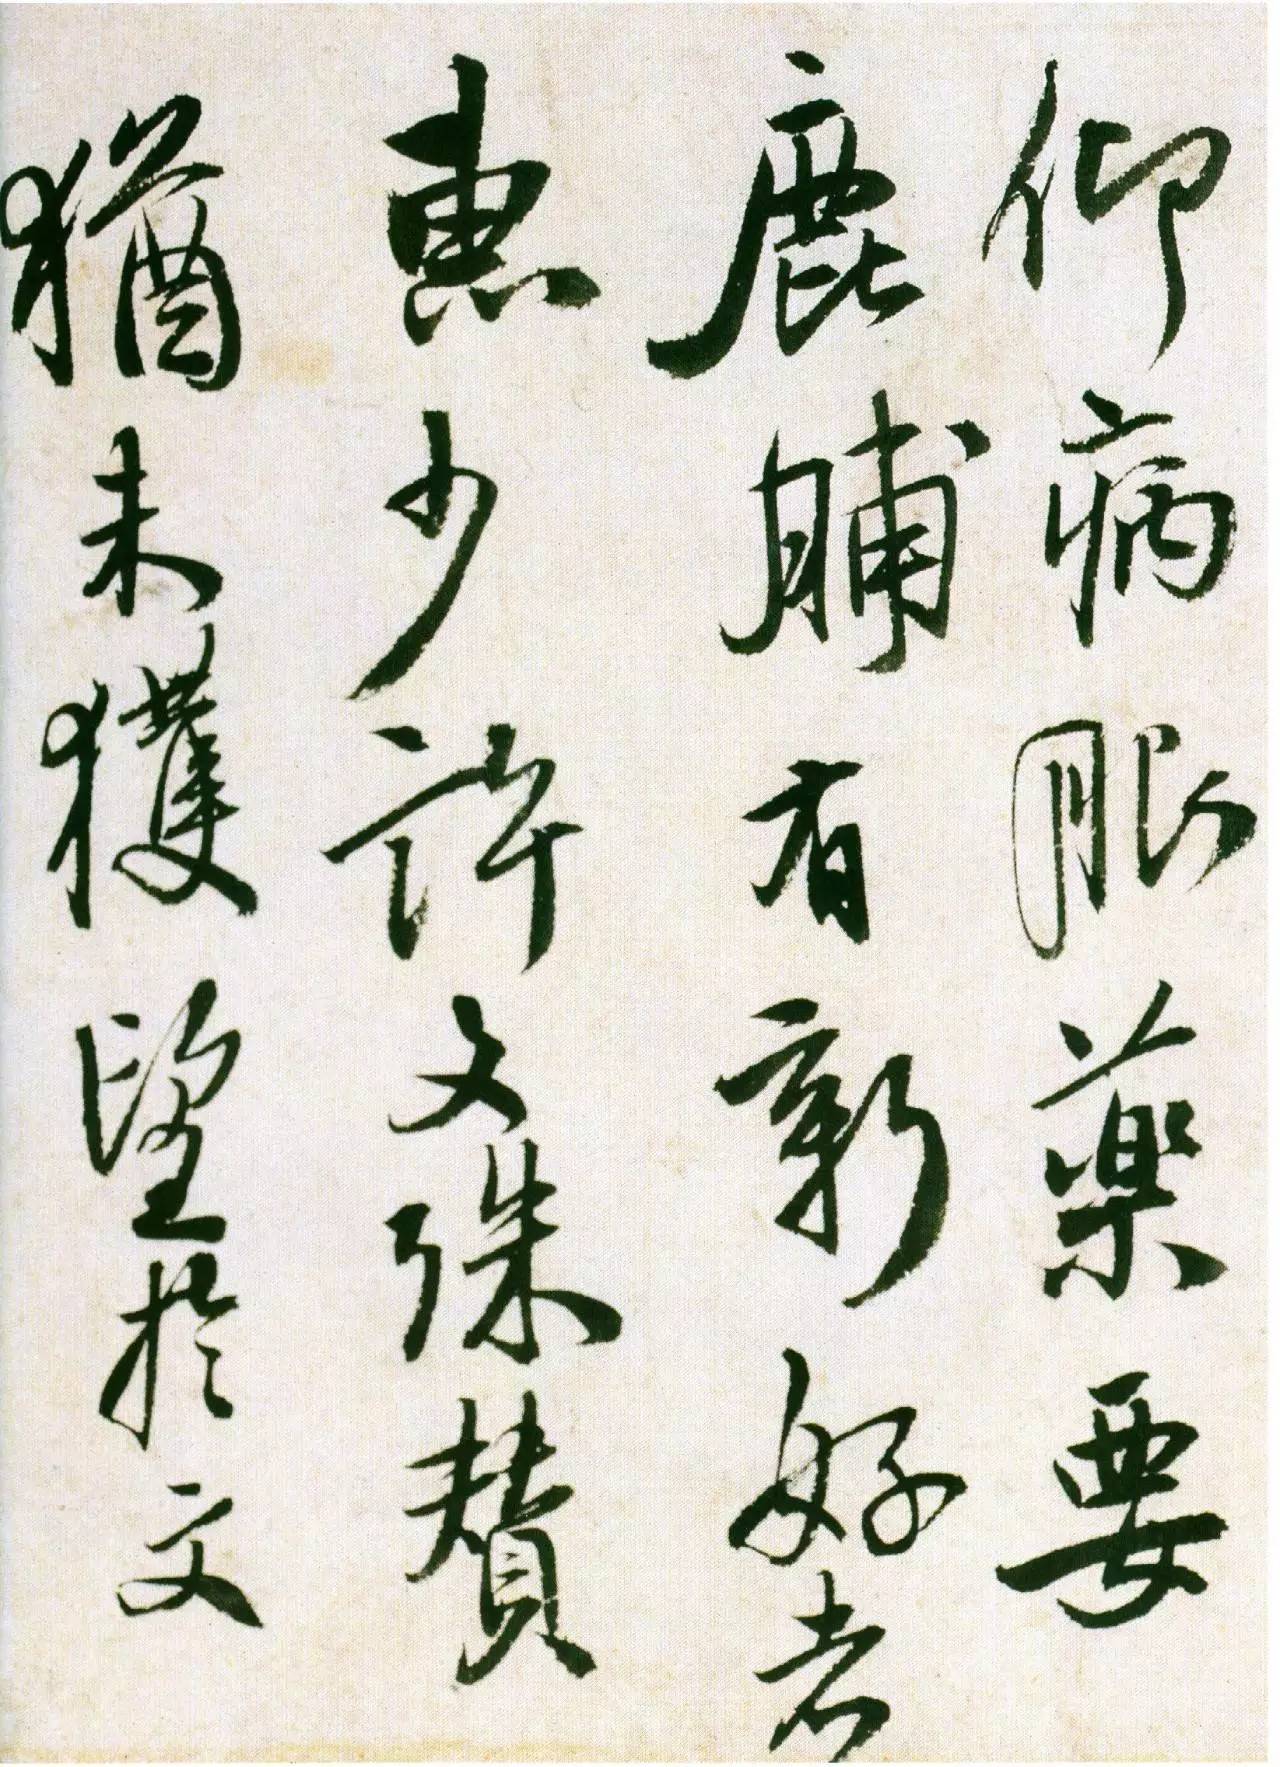 仰病眼药要
鹿脯有新好者
惠少许文殊赞
猶未獲望於文